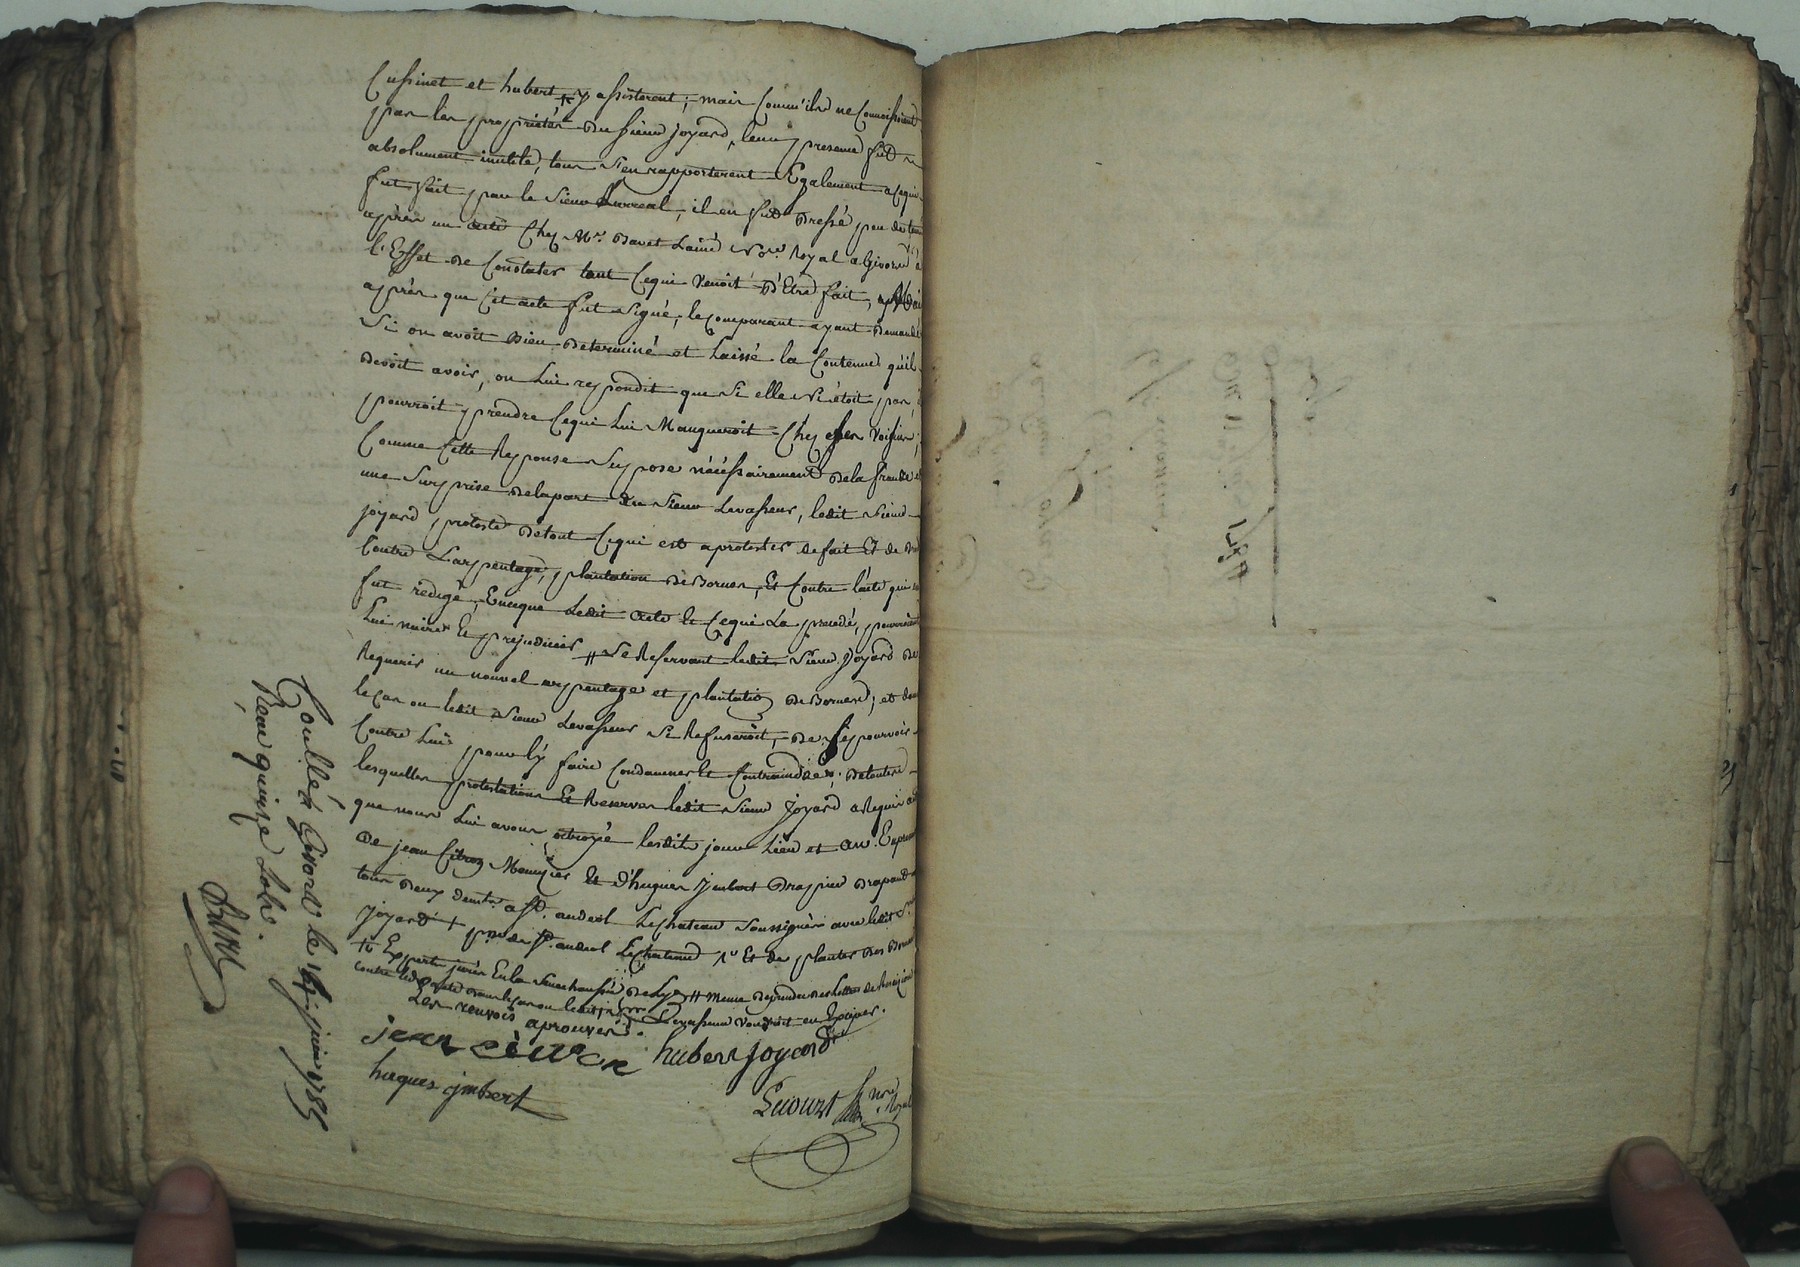 Cussinet et hubert + y assisterent; mais Comm'ils ne Connoissoient
pas les proprietés du sieur joyard, leur presence fut
absolument inutile, tous s'en rapporterent Egalement a cequi
fut fait par le sieur, il en fut dressé peu de tems
après un acte Chez Mr. Davet Lainé No.re Royal a Givors à
l'Effet de Constater tout Cequi venoit d'Etre fait,
après que Cet acte fut signé, le comparant ayant demandé
Si on avoit bien determiné et Laissé la Contenue qu'il
devoit avoir, on Lui repondit que si elle n'i étoit pas,
pourroit prendre Cequi Lui Manqueroit Chez ses voisins;
Comme Cette Reponse Supose nécéssairement de la fraude et
une Surprise delapart du sieur Levasseur, ledit sieur
joyard proteste detout Cequi est a protester de fait Et de
Contre L'arpentage, plantation de Bornes, Et Contre l'acte qui en
fut redigé, Enceque Ledit acte et Cequi La precedé, pourroient
Lui nuire et prejudicier # Se Reservant ledit Sieur Joyard de
Requerir un nouvel arpentage et plantation de Bornes; et dans
le cas ou ledit Sieur Levasseur S'i Refuseroit, de se pourvoir
Contre Lui pour l'y faire Condamner et Contraindre; detoutes
lesquelles protestations Et Reserves ledit Sieur Joyard a Requis acte
que nous Lui avons octroyé lesdits jour Lieu et an. En presence
De jean Meunier Et d'hugues Jmbert Drapier drapant
tous deux demts. a St. andeol Le chateau Soussignés avec ledit Sr.
joyard + pr. de St. andeol Le chateau Et de planter des Bornes
Experts jurés En la Senechaussée de Lyon # meme de prendre des lettres de Rescision
contre led. acte dans le cas ou ledit Sieur Levasseur voudroit en Exciper.
Les renvois aprouvés.
hubert joyard
hugues jmbert
Lecourt nore Royal
Controllé a Givors le juin 1785
Reçu quinze sols.